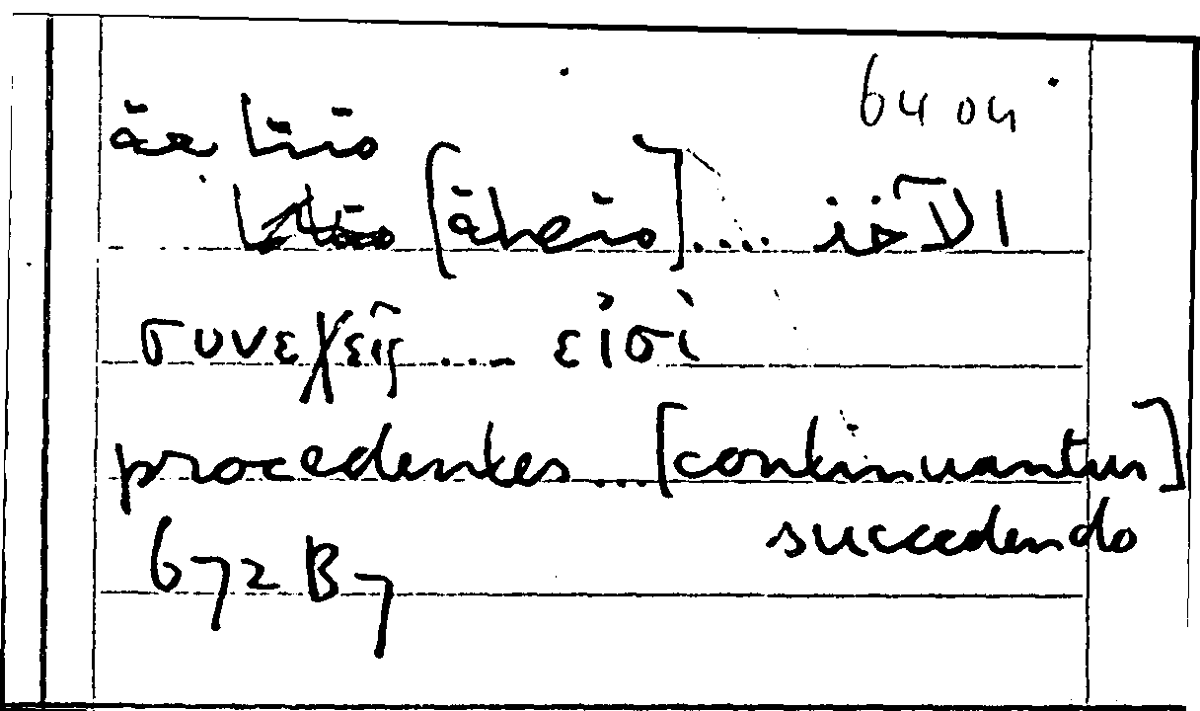 64 04
متتابعة
الآخذ .... [متصلة]
συνεχεῖς .... εἰσὶ
procedentes ... [continuantur]
succedendo
672 B7